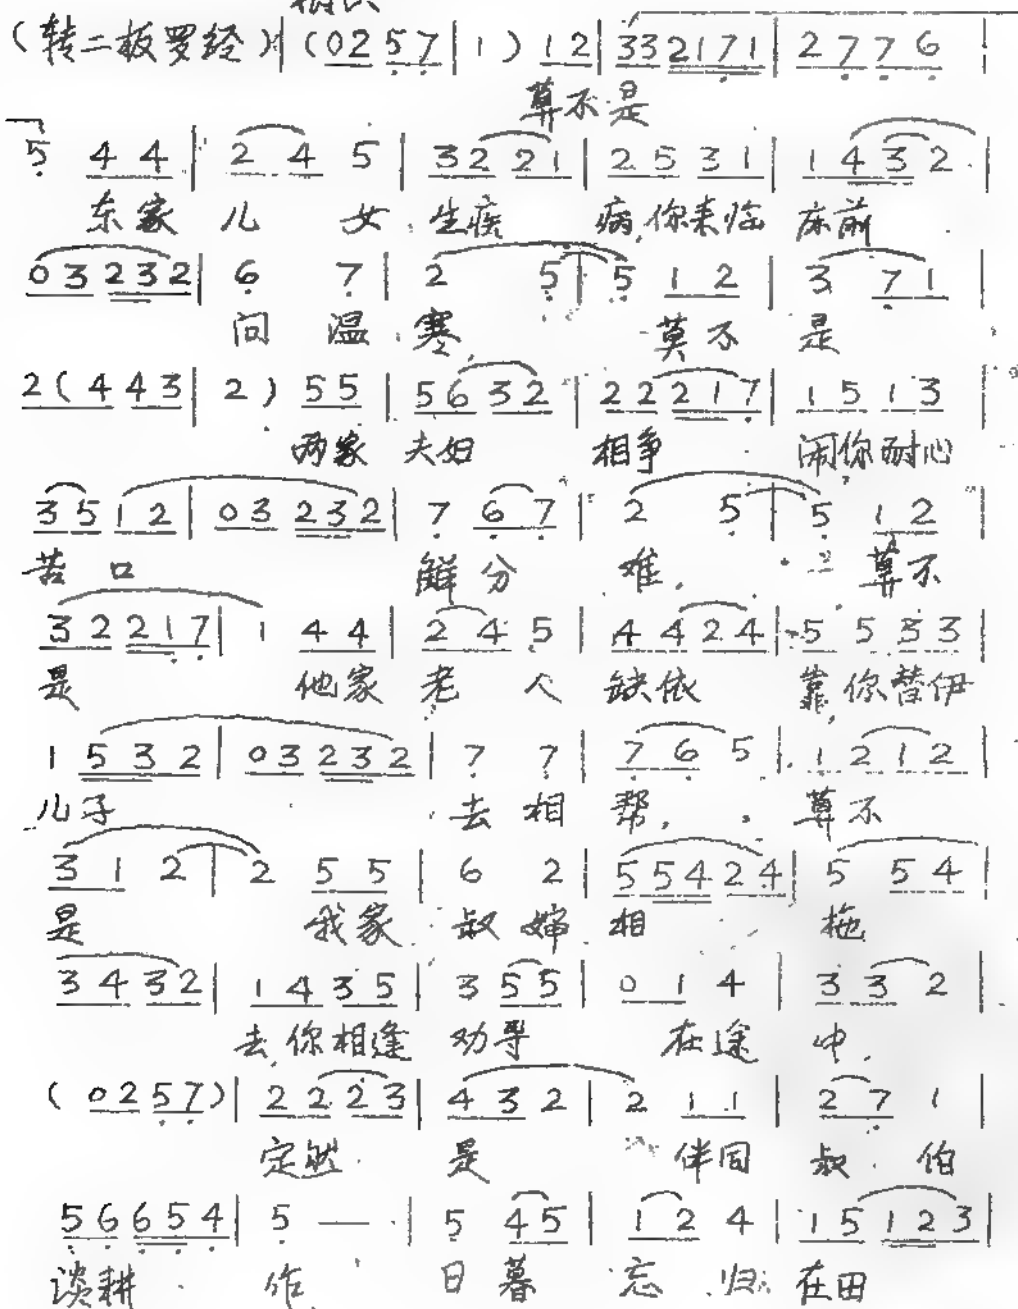 (转二板罗经)‖(02 57|1) 12|33 2171|2776|
算不是
5 44|2 4 5|32 21|25 31|1432|
东家 儿 女 生疾 病,你来临 床前
03 232|6 7|2 5|5 12|3 71|
问 温 寒, 莫不 是
2(4 43|2) 55|56 32|22 217|15 13|
两家 夫妇 相争 闹你耐心
35 12|03 232|7 67|2 5|5 12|
苦口 解分 难, 算不
32 217|1 44|24 5|44 24|55 33|
是 他家 老 人 缺依 靠,你替伊
1 532|03 232|7 7|76 5|12 12|
儿子 去 相 帮, 算不
31 2|2 55|6 2|5 54 24|5 54|
是 我家 叔 婶 相 拖
34 32|14 35|3 55|01 4|33 2|
去,你相逢 劝导 在途 中,
(02 57)|22 23|43 2|2 11|27 1|
定然 是 伴同 叔 伯
56 654|5 —|5 45|12 4|15 123|
谈耕 作, 日 暮 忘 归 在田